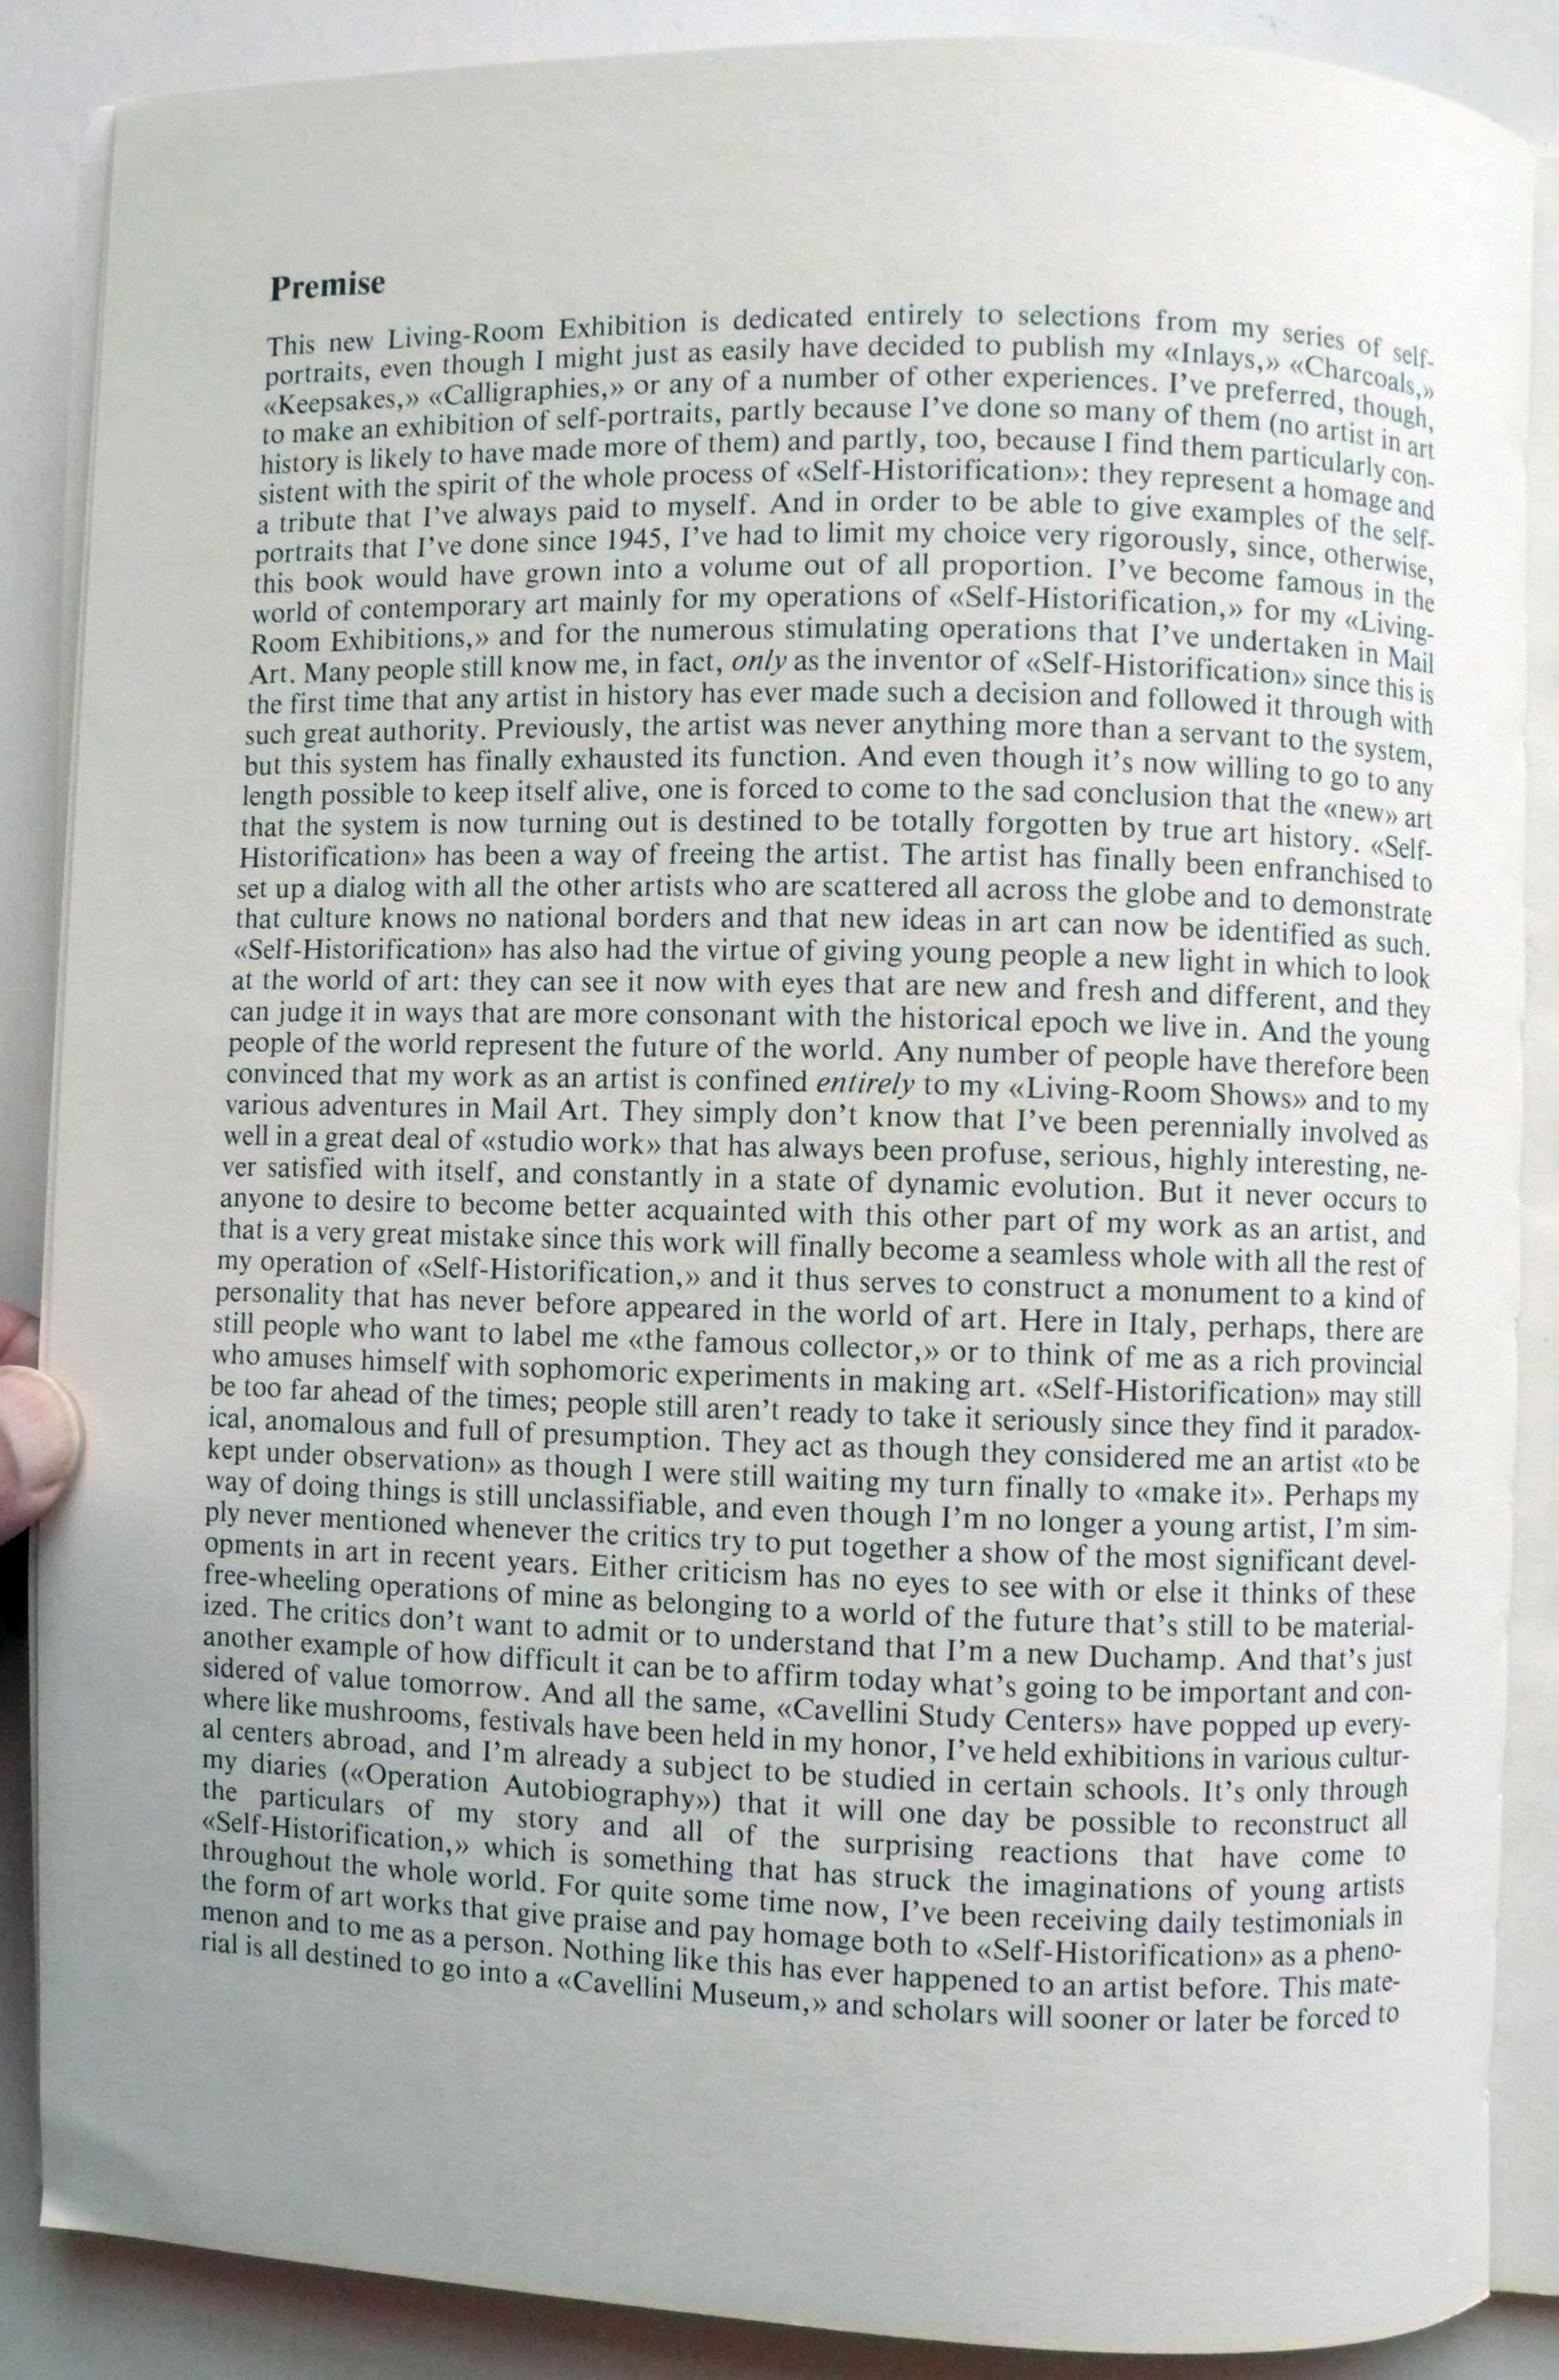 Premise
This new Living-Room Exhibition is dedicated entirely to selections from my series of self-
portraits, even though I might just as easily have decided to publish my «Inlays,» «Charcoals,»
«Keepsakes,» «Calligraphies,» or any of a number of other experiences. I've preferred, though,
to make an exhibition of self-portraits, partly because I've done so many of them (no artist in art
history is likely to have made more of them) and partly, too, because I find them particularly con-
sistent with the spirit of the whole process of «Self-Historification»: they represent a homage and
a tribute that I've always paid to myself. And in order to be able to give examples of the self-
portraits that I've done since 1945, I've had to limit my choice very rigorously, since, otherwise,
this book would have grown into a volume out of all proportion. I've become famous in the
world of contemporary art mainly for my operations of «Self-Historification,» for my «Living-
Room Exhibitions,» and for the numerous stimulating operations that I've undertaken in Mail
Art. Many people still know me, in fact, only as the inventor of «Self-Historification» since this is
the first time that any artist in history has ever made such a decision and followed it through with
such great authority. Previously, the artist was never anything more than a servant to the system,
but this system has finally exhausted its function. And even though it's now willing to go to any
length possible to keep itself alive, one is forced to come to the sad conclusion that the «new» art
that the system is now turning out is destined to be totally forgotten by true art history. «Self-
Historification» has been a way of freeing the artist. The artist has finally been enfranchised to
set up a dialog with all the other artists who are scattered all across the globe and to demonstrate
that culture knows no national borders and that new ideas in art can now be identified as such.
«Self-Historification» has also had the virtue of giving young people a new light in which to look
at the world of art: they can see it now with eyes that are new and fresh and different, and they
can judge it in ways that are more consonant with the historical epoch we live in. And the young
people of the world represent the future of the world. Any number of people have therefore been
convinced that my work as an artist is confined entirely to my «Living-Room Shows» and to my
various adventures in Mail Art. They simply don't know that I've been perennially involved as
well in a great deal of «studio work» that has always been profuse, serious, highly interesting, ne-
ver satisfied with itself, and constantly in a state of dynamic evolution. But it never occurs to
anyone to desire to become better acquainted with this other part of my work as an artist, and
that is a very great mistake since this work will finally become a seamless whole with all the rest of
my operation of «Self-Historification,» and it thus serves to construct a monument to a kind of
personality that has never before appeared in the world of art. Here in Italy, perhaps, there are
still people who want to label me «the famous collector,» or to think of me as a rich provincial
who amuses himself with sophomoric experiments in making art. «Self-Historification» may still
be too far ahead of the times; people still aren't ready to take it seriously since they find it paradox-
ical, anomalous and full of presumption. They act as though they considered me an artist «to be
kept under observation» as though I were still waiting my turn finally to «make it». Perhaps my
way of doing things is still unclassifiable, and even though I'm no longer a young artist, I'm sim-
ply never mentioned whenever the critics try to put together a show of the most significant devel-
opments in art in recent years. Either criticism has no eyes to see with or else it thinks of these
free-wheeling operations of mine as belonging to a world of the future that's still to be material-
ized. The critics don't want to admit or to understand that I'm a new Duchamp. And that's just
another example of how difficult it can be to affirm today what's going to be important and con-
sidered of value tomorrow. And all the same, «Cavellini Study Centers» have popped up every-
where like mushrooms, festivals have been held in my honor, I've held exhibitions in various cultur-
al centers abroad, and I'm already a subject to be studied in certain schools. It's only through
my diaries («Operation Autobiography») that it will one day be possible to reconstruct all
the particulars of my story and all of the surprising reactions that have come to
«Self-Historification,» which is something that has struck the imaginations of young artists
throughout the whole world. For quite some time now, I've been receiving daily testimonials in
the form of art works that give praise and pay homage both to «Self-Historification» as a pheno-
menon and to me as a person. Nothing like this has ever happened to an artist before. This mate-
rial is all destined to go into a «Cavellini Museum,» and scholars will sooner or later be forced to